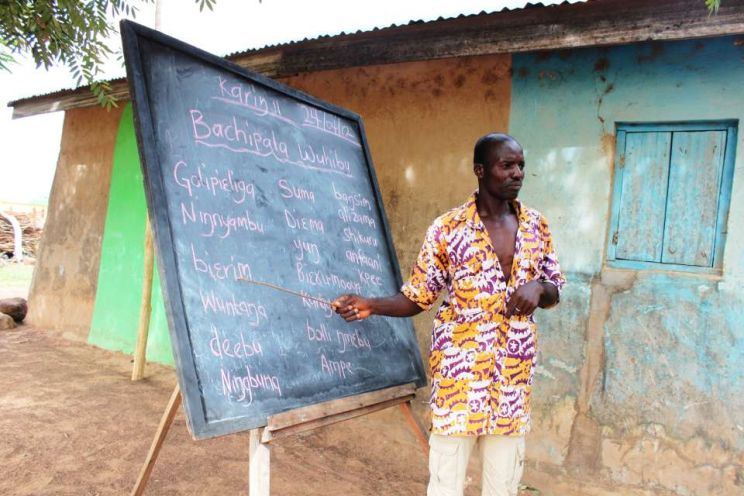 Karin II 24/04/2
Bachipala Wuhibu
Golipieliga Suma bagsim
Ninnyambu Diema alizama
yun shikuru
bierim anfaani
Biekirindoo Kpee
Wuntanja
deebu bolli ŋmebu
Ningbuna Ampe